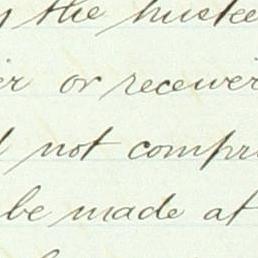 the trustee
or receiver
not compr
be made at